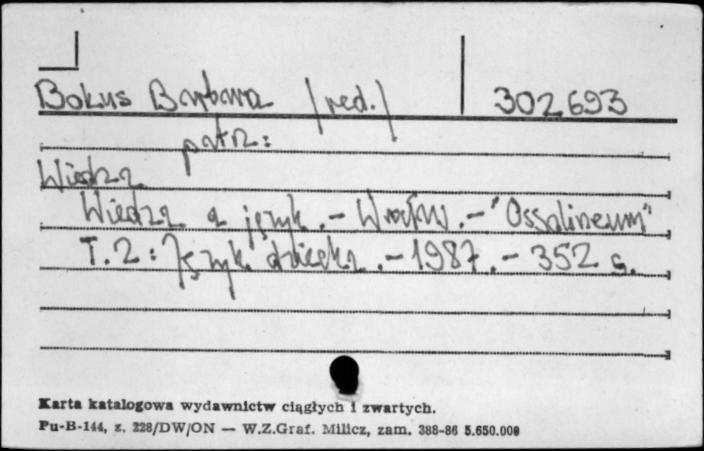 Bokus Barbara /red./ 302693
patrz:
Wiedza
Wiedza a język.- Wrocław.- "Ossolineum"
T. 2: Język dziecka.- 1987.- 352 s.
Karta katalogowa wydawnictw ciągłych i zwartych.
Pu-B-144, z. 228/DW/ON — W.Z.Graf. Milicz, zam. 388-86 5.650.000